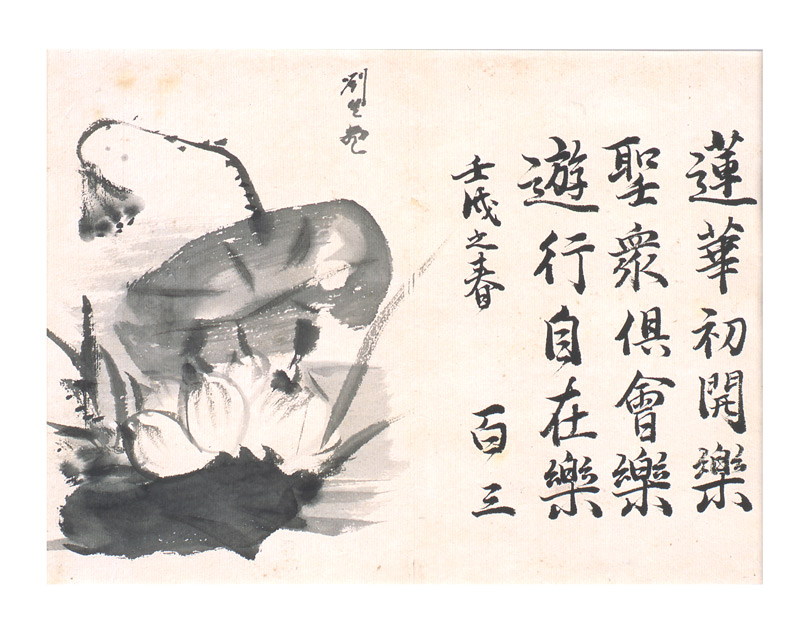 蓮華初開樂
聖衆俱會樂
遊行自在樂
壬戌之春 百三
劉生画